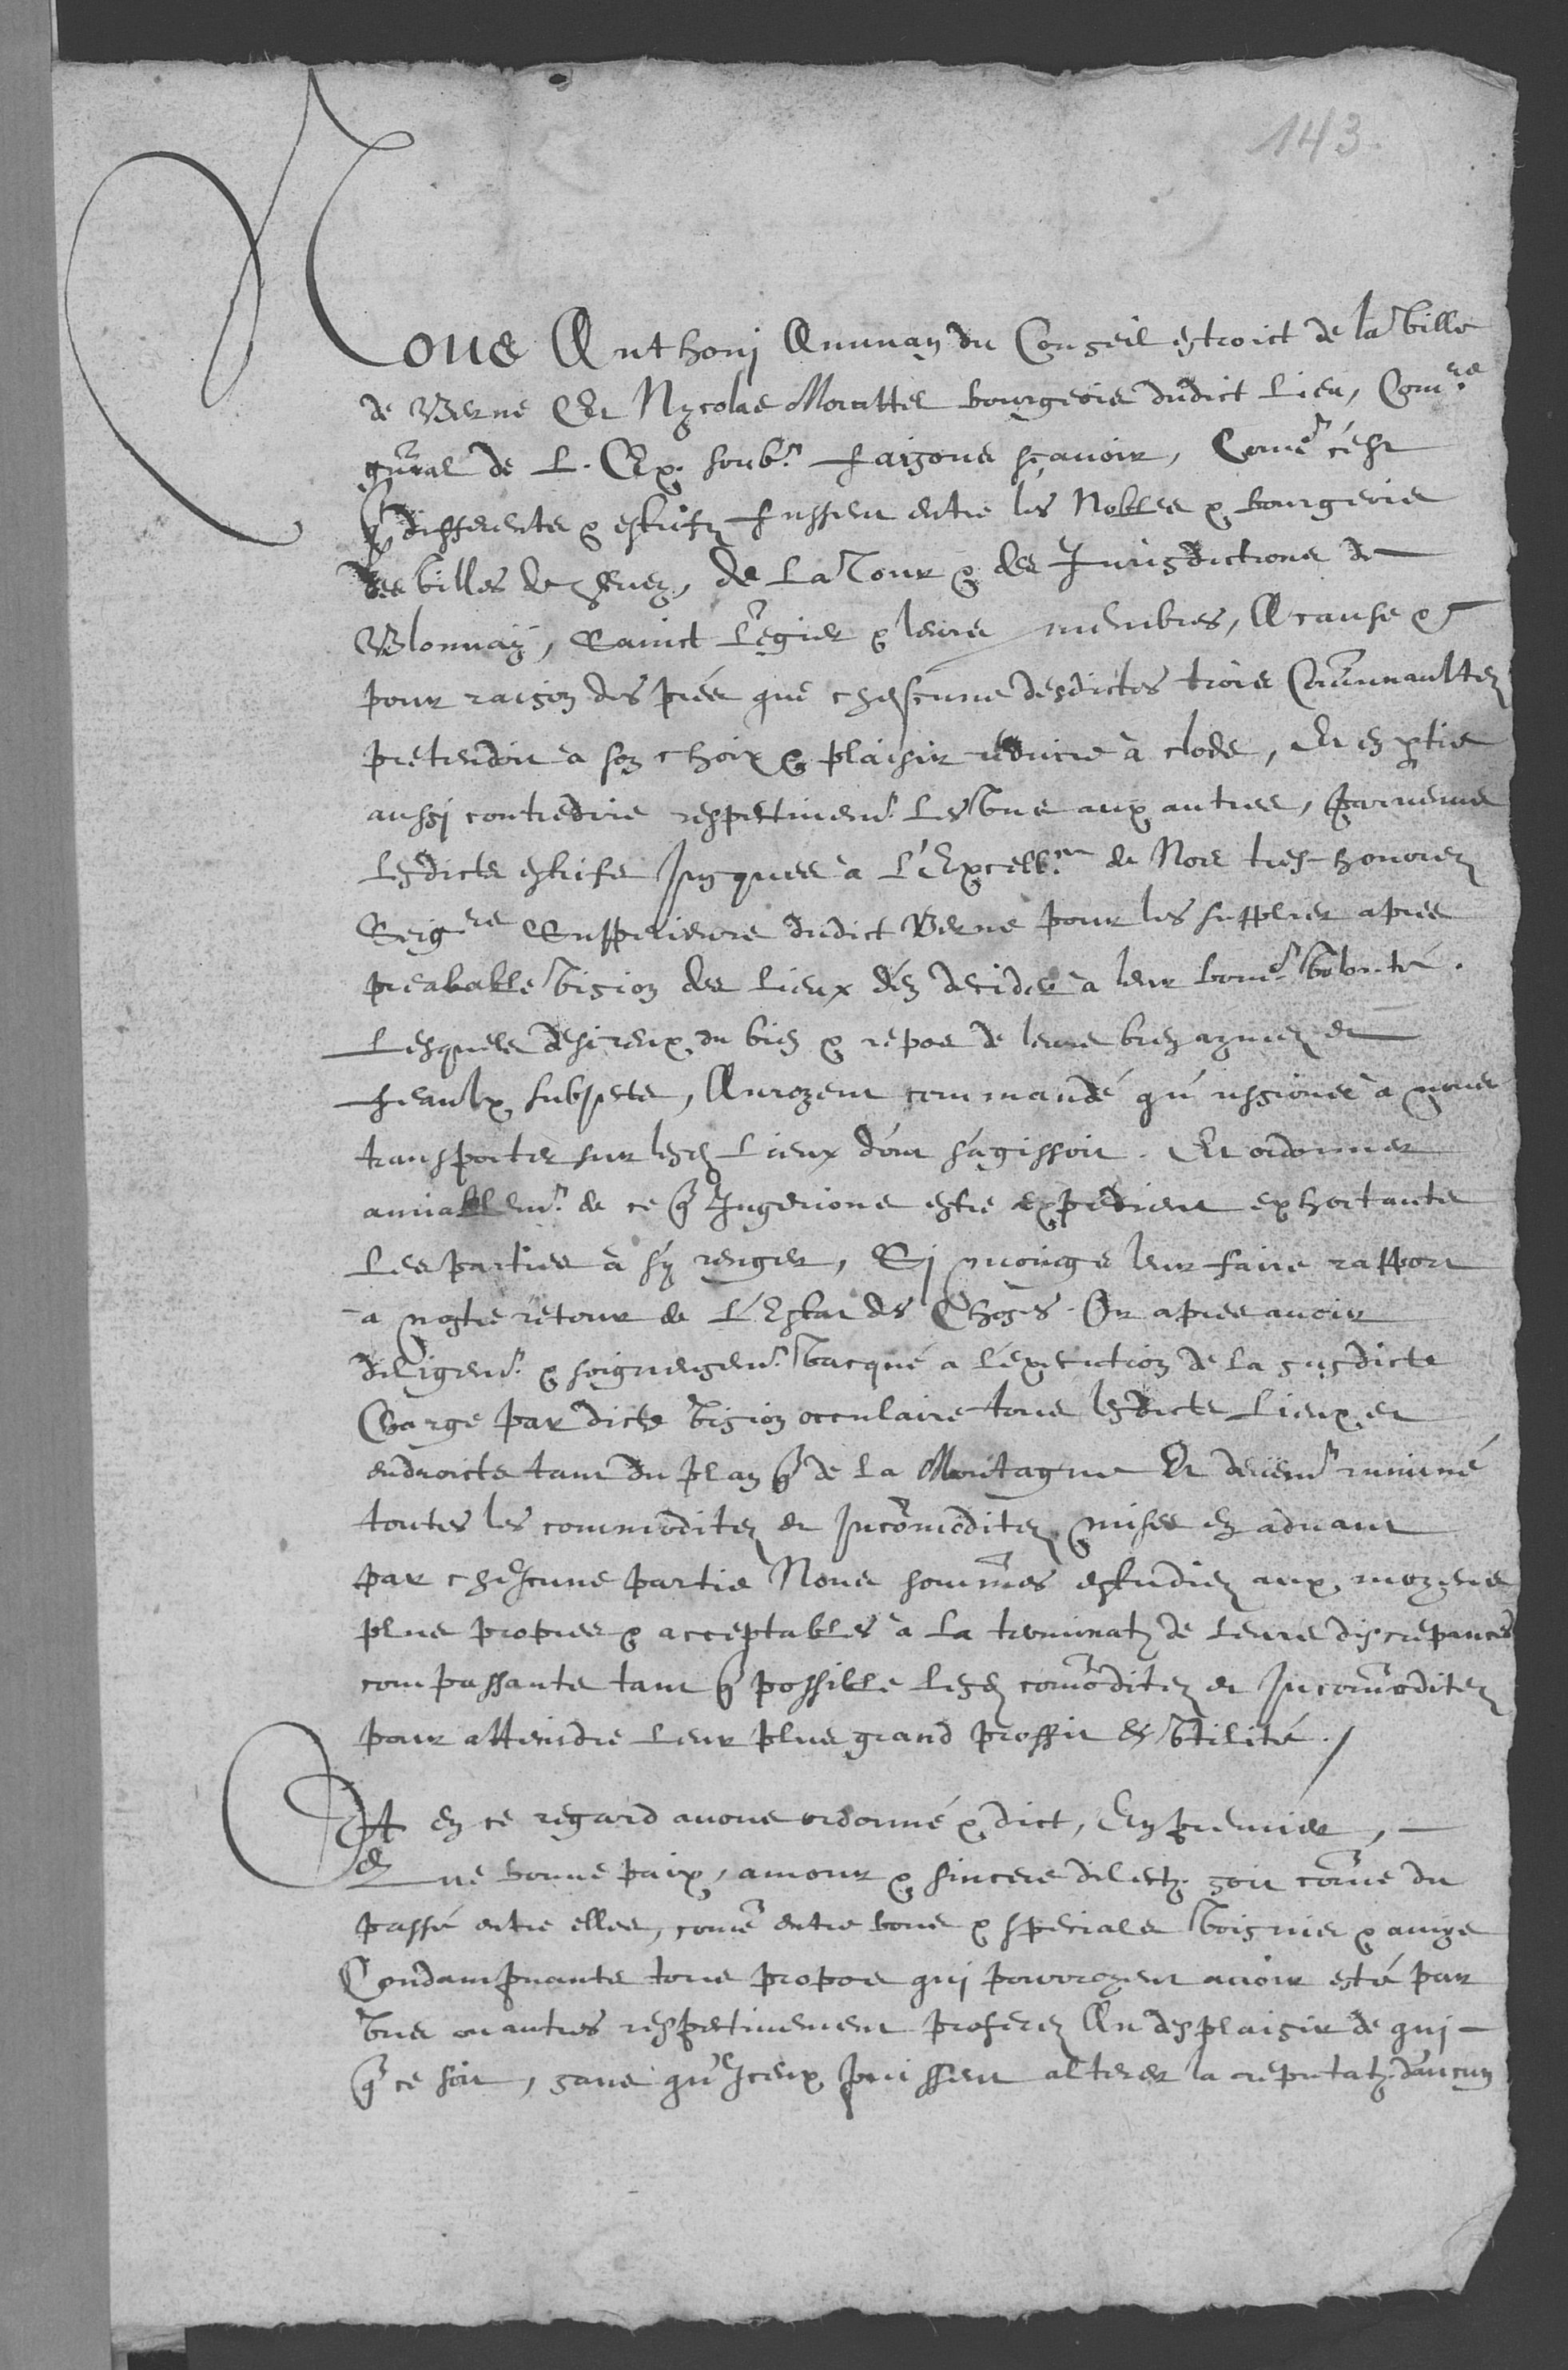 143
Nous Anthonj Amman du Conseil estroict de la Ville
de Berne Et Nycolas Morattel bourgeois dudict Lieu, Comre
gñral de L. Ex. soubt Faisons sçavoir, Comẽ c'est
q̃ differents & estrifz fussent entre les Nobles & bourgeois
des villes de Vevey, de La Tour & des Jurisdictions de
Blonnay, Sainct Legier & leurs membres, A cause &
pour raison des priés que chescune desdictes trois Com̃unaultez
pretendoit à son choix & plaisir reduire à clode, Et en ptie
aussi contredire respectivemt Les Uns aux autres, parvenus
Lesdicts estrifs Jusques à L'Excellce de Nos tres-honorez
Seigrs Supperieurs dudict Berne pour les supplier apres
prealable Vision des Lieux d'en decider à leur bonne Volonté.
Lesquels desireux du bien & repos de leurs bien aymez et
feaulx subjects, Auroyent commandé qu'ussions à nous
transporter sur lesd Lieux dont s'agissoit. Et ordonner
amiablemt de ce q̃ Jugerions estre expedient exhortants
Les parties à s'y renger, Si moings leur faire rapport
a nostre retour de L'Estat des Choses. Or apres avoir
diligemt & soigneusemt Vacqué a l'execution de la susdicte
Charge par dicte Vision occulaire tous lesdicts Lieux et
endroicts tant du plan q̃ de la Montagne Et deuemt ruminé
toutes les commoditez et Incõmoditez mises en advant
par chescune partie Nous som̃es estudiez aux moyens
plus propres & acceptables à La terminatz de Leurs discrepances
compassants tant q̃ possible Lesd com̃oditez et Incom̃oditez
pour atteindre Leur plus grand proffit et Utilité./
Et en ce regard avons ordonné & dict, En premier,
Que bonne paix, amour & sincere dilectz. soit com̃e du
passé entre elles, com̃e entre bons & specials Voisins & amys
Condampnants tous propos qui pourroyent avoir esté par
Uns ou autres respectivement proferez Au desplaisir de qui
q̃ ce soit, sans qu'Jceux puissent alterer la reputatz d'aucun